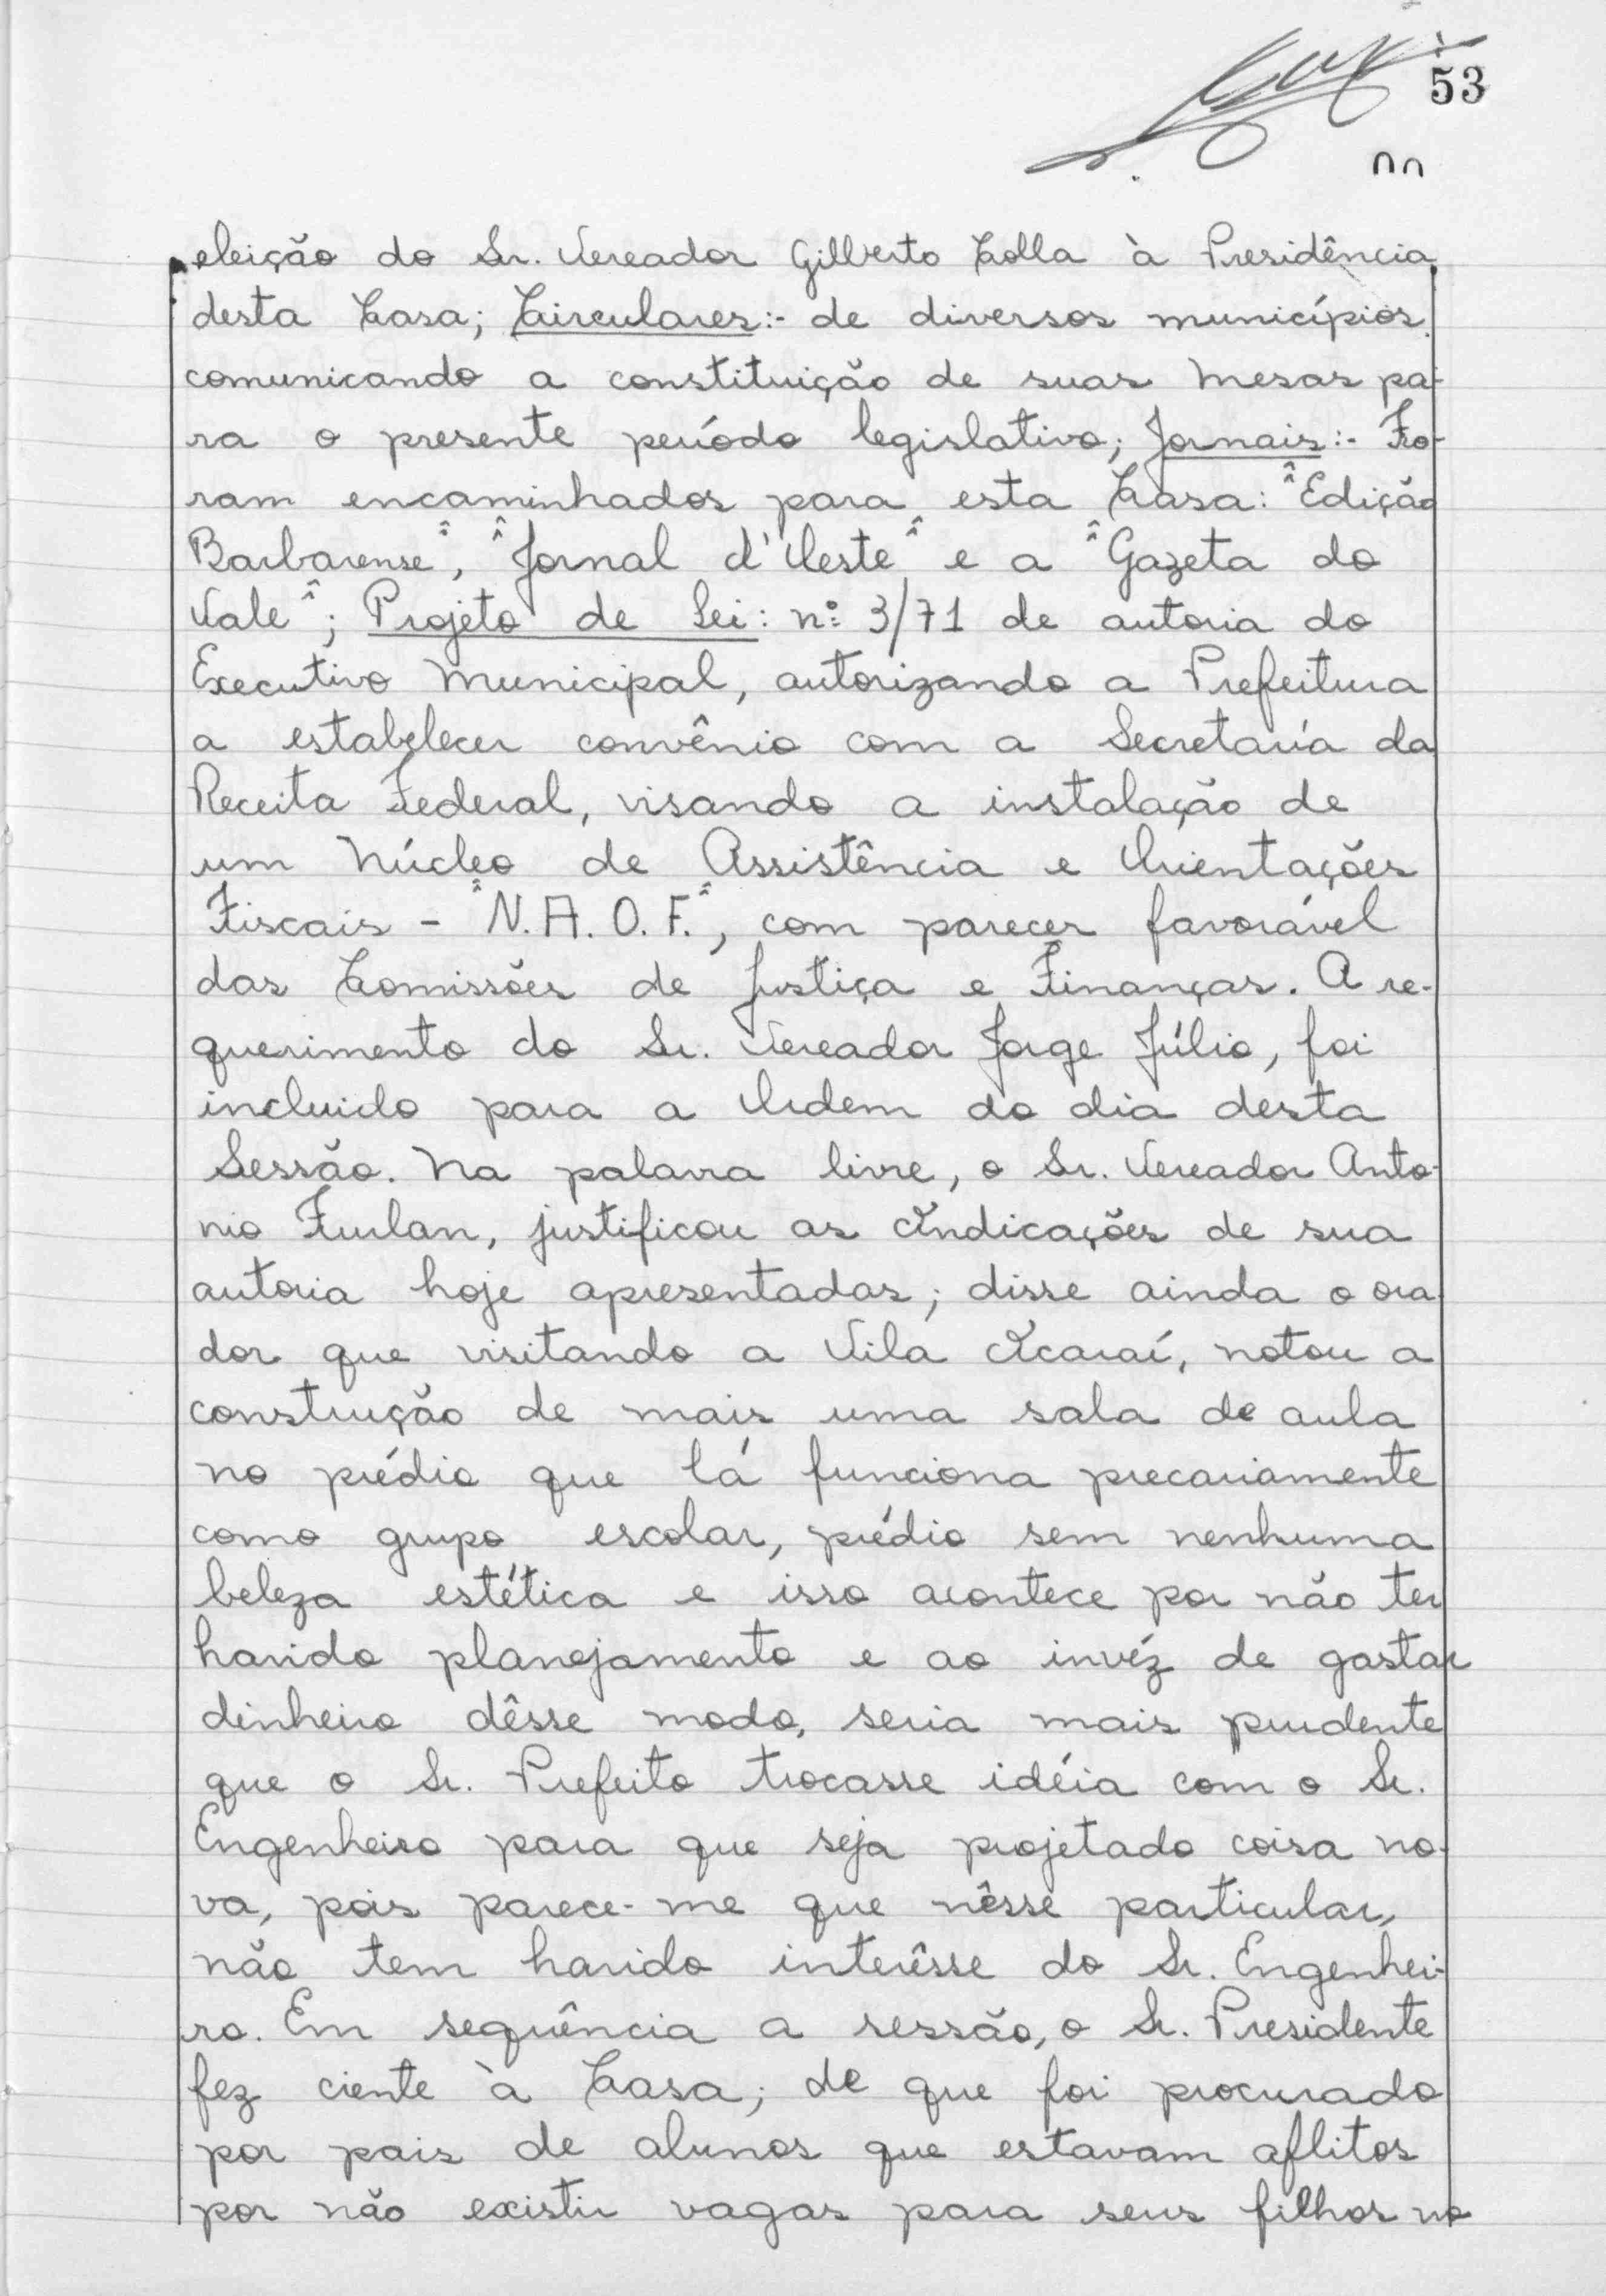 53
eleição do Sr. Vereador Gilberto Colla à Presidência
desta Casa; Circulares:- de diversos municípios
comunicando a constituição de suas Mesas pa-
ra o presente período legislativo; Jornais:- Fo-
ram encaminhados para esta Casa: "Edição
Barbarense", "Jornal d'Oeste" e a "Gazeta do
Vale"; Projeto de Lei: nº 3/71 de autoria do
Executivo Municipal, autorizando a Prefeitura
a estabelecer convênio com a Secretaria da
Receita Federal, visando a instalação de
um Núcleo de Assistência e Orientações
Fiscais - "N.A.O.F.", com parecer favorável
das Comissões de Justiça e Finanças. A re-
querimento do Sr. Vereador Jorge Júlio, foi
incluido para a Ordem do dia desta
Sessão. Na palavra livre, o Sr. Vereador Anto-
nio Furlan, justificou as Indicações de sua
autoria hoje apresentadas; disse ainda o ora-
dor que visitando a Vila Icaraí, notou a
construção de mais uma sala de aula
no prédio que lá funciona precariamente
como grupo escolar, prédio sem nenhuma
beleza estética e isso acontece por não ter
havido planejamento e ao invéz de gastar
dinheiro dêsse modo, seria mais prudente
que o Sr. Prefeito trocasse idéia com o Sr.
Engenheiro para que seja projetado coisa no-
va, pois parece-me que nêsse particular,
não tem havido interêsse do Sr. Engenhei-
ro. Em sequência a sessão, o Sr. Presidente
fez ciente à Casa; de que foi procurado
por pais de alunos que estavam aflitos
por não existir vagas para seus filhos no